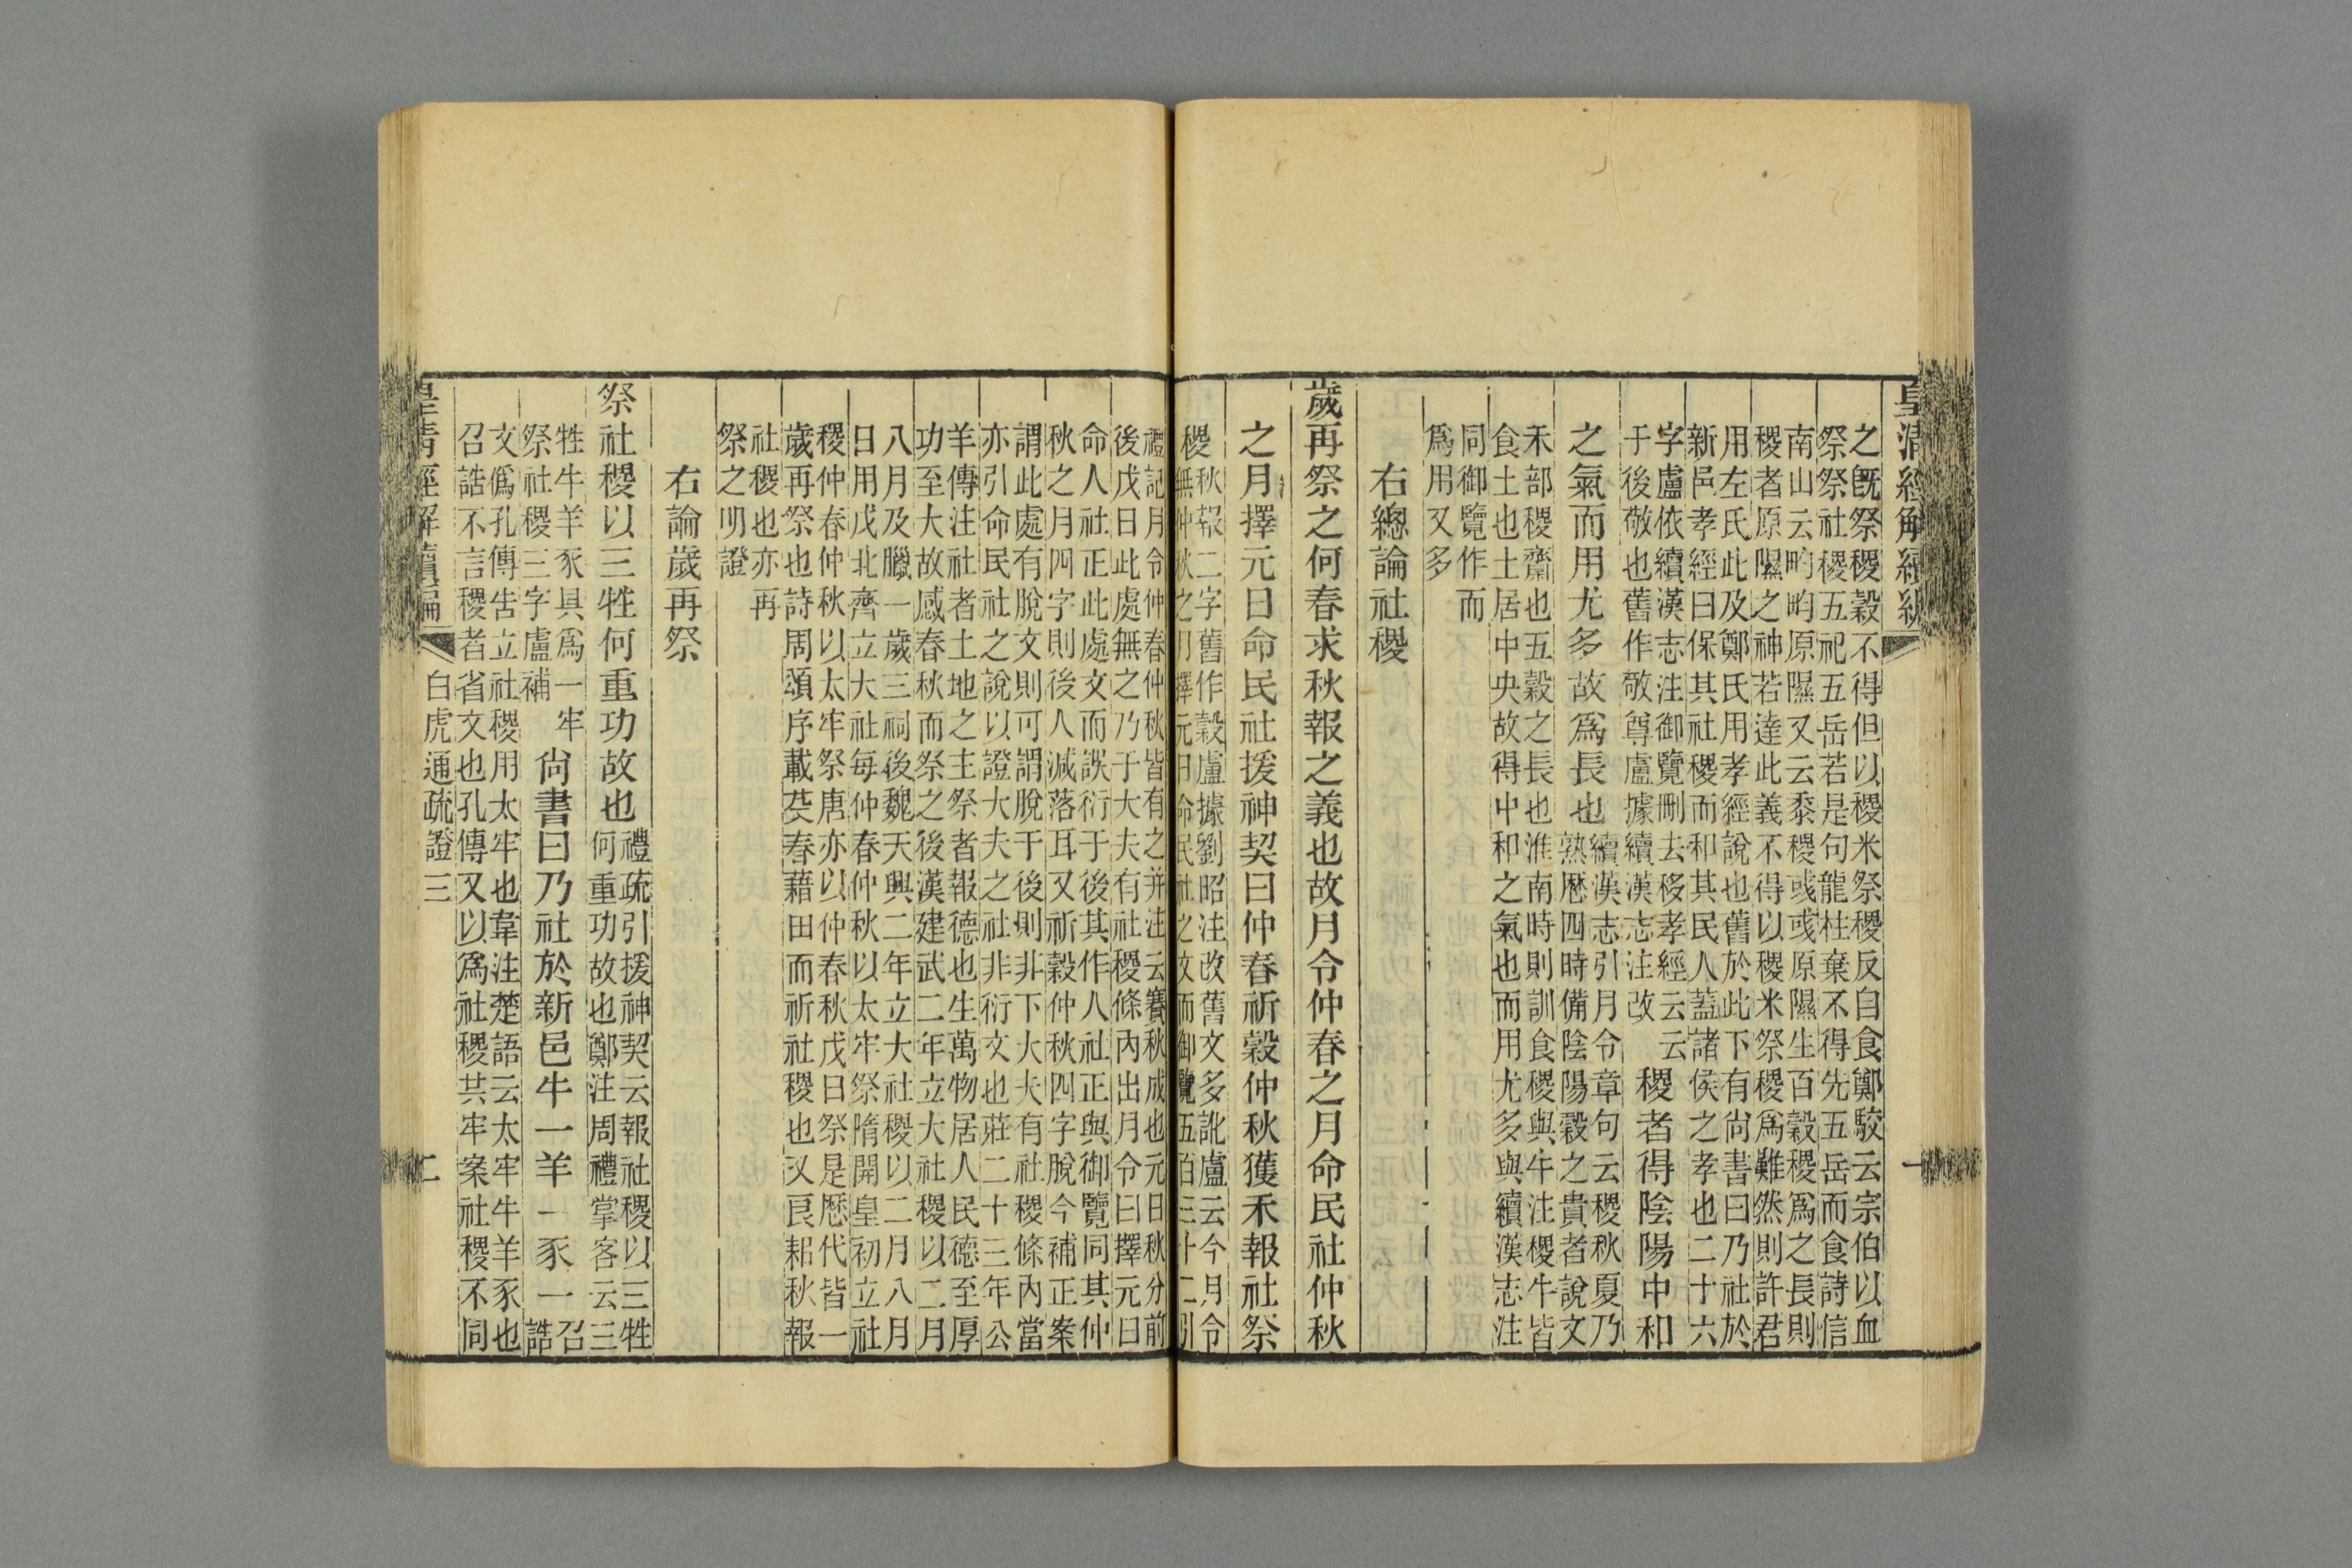 皇清經解續編
一
之旣祭稷穀不得但以稷米祭稷反自食鄭駁云宗伯以血
祭祭社稷五祀五岳若是句龍柱棄不得先五岳而食詩信
南山云畇畇原隰又云黍稷彧彧原隰生百穀稷爲之長則
稷者原隰之神若達此義不得以稷米祭稷爲難然則許君
用左氏此及鄭氏用孝經說也舊於此下有尙書曰乃社於
新邑孝經曰保其社稷而和其民人蓋諸侯之孝也二十六
字盧依續漢志注御覽刪去移孝經云云
于後敬也舊作敬尊盧據續漢志注改
稷者得陰陽中和
之氣而用尤多故爲長也
續漢志引月令章句云稷秋夏乃
熟歷四時備陰陽穀之貴者說文
禾部稷齋也五穀之長也淮南時則訓食稷與牛注稷牛皆
食土也土居中央故得中和之氣也而用尤多與續漢志注
同御覽作而
爲用又多
右總論社稷
歲再祭之何春求秋報之義也故月令仲春之月命民社仲秋
之月擇元日命民社援神契曰仲春祈穀仲秋獲禾報社祭
稷
秋報二字舊作穀盧據劉昭注改舊文多訛盧云今月令
無仲秋之月擇元日命民社之文而御覽五百三十二引
禮記月令仲春仲秋皆有之并注云賽秋成也元日秋分前
後戊日此處無之乃于大夫有社稷條內出月令曰擇元日
命人社正此處文而誤衍于後其作人社正與御覽同其仲
秋之月四字則後人減落耳又祈穀仲秋四字脫今補正案
謂此處有脫文則可謂脫于後則非下大夫有社稷條內當
亦引命民社之說以證大夫之社非衍文也莊二十三年公
羊傳注社者土地之主祭者報德也生萬物居人民德至厚
功至大故感春秋而祭之後漢建武二年立大社稷以二月
八月及臘一歲三祠後魏天興二年立大社稷以二月八月
日用戊北齊立大社每仲春仲秋以太牢祭隋開皇初立社
稷仲春仲秋以太牢祭唐亦以仲春秋戊日祭是歷代皆一
歲再祭也詩周頌序載芟春藉田而祈社稷也又良耜秋報
社稷也亦再
祭之明證
右論歲再祭
祭社稷以三牲何重功故也
禮疏引援神契云報社稷以三牲
何重功故也鄭注周禮掌客云三
牲牛羊豕具爲一牢
祭社稷三字盧補
尙書曰乃社於新邑牛一羊一豕一
召
誥
文僞孔傳告立社稷用太牢也韋注楚語云太牢牛羊豕也
召誥不言稷者省文也孔傳又以爲社稷共牢案社稷不同
皇清經解續編
白虎通疏證三
二